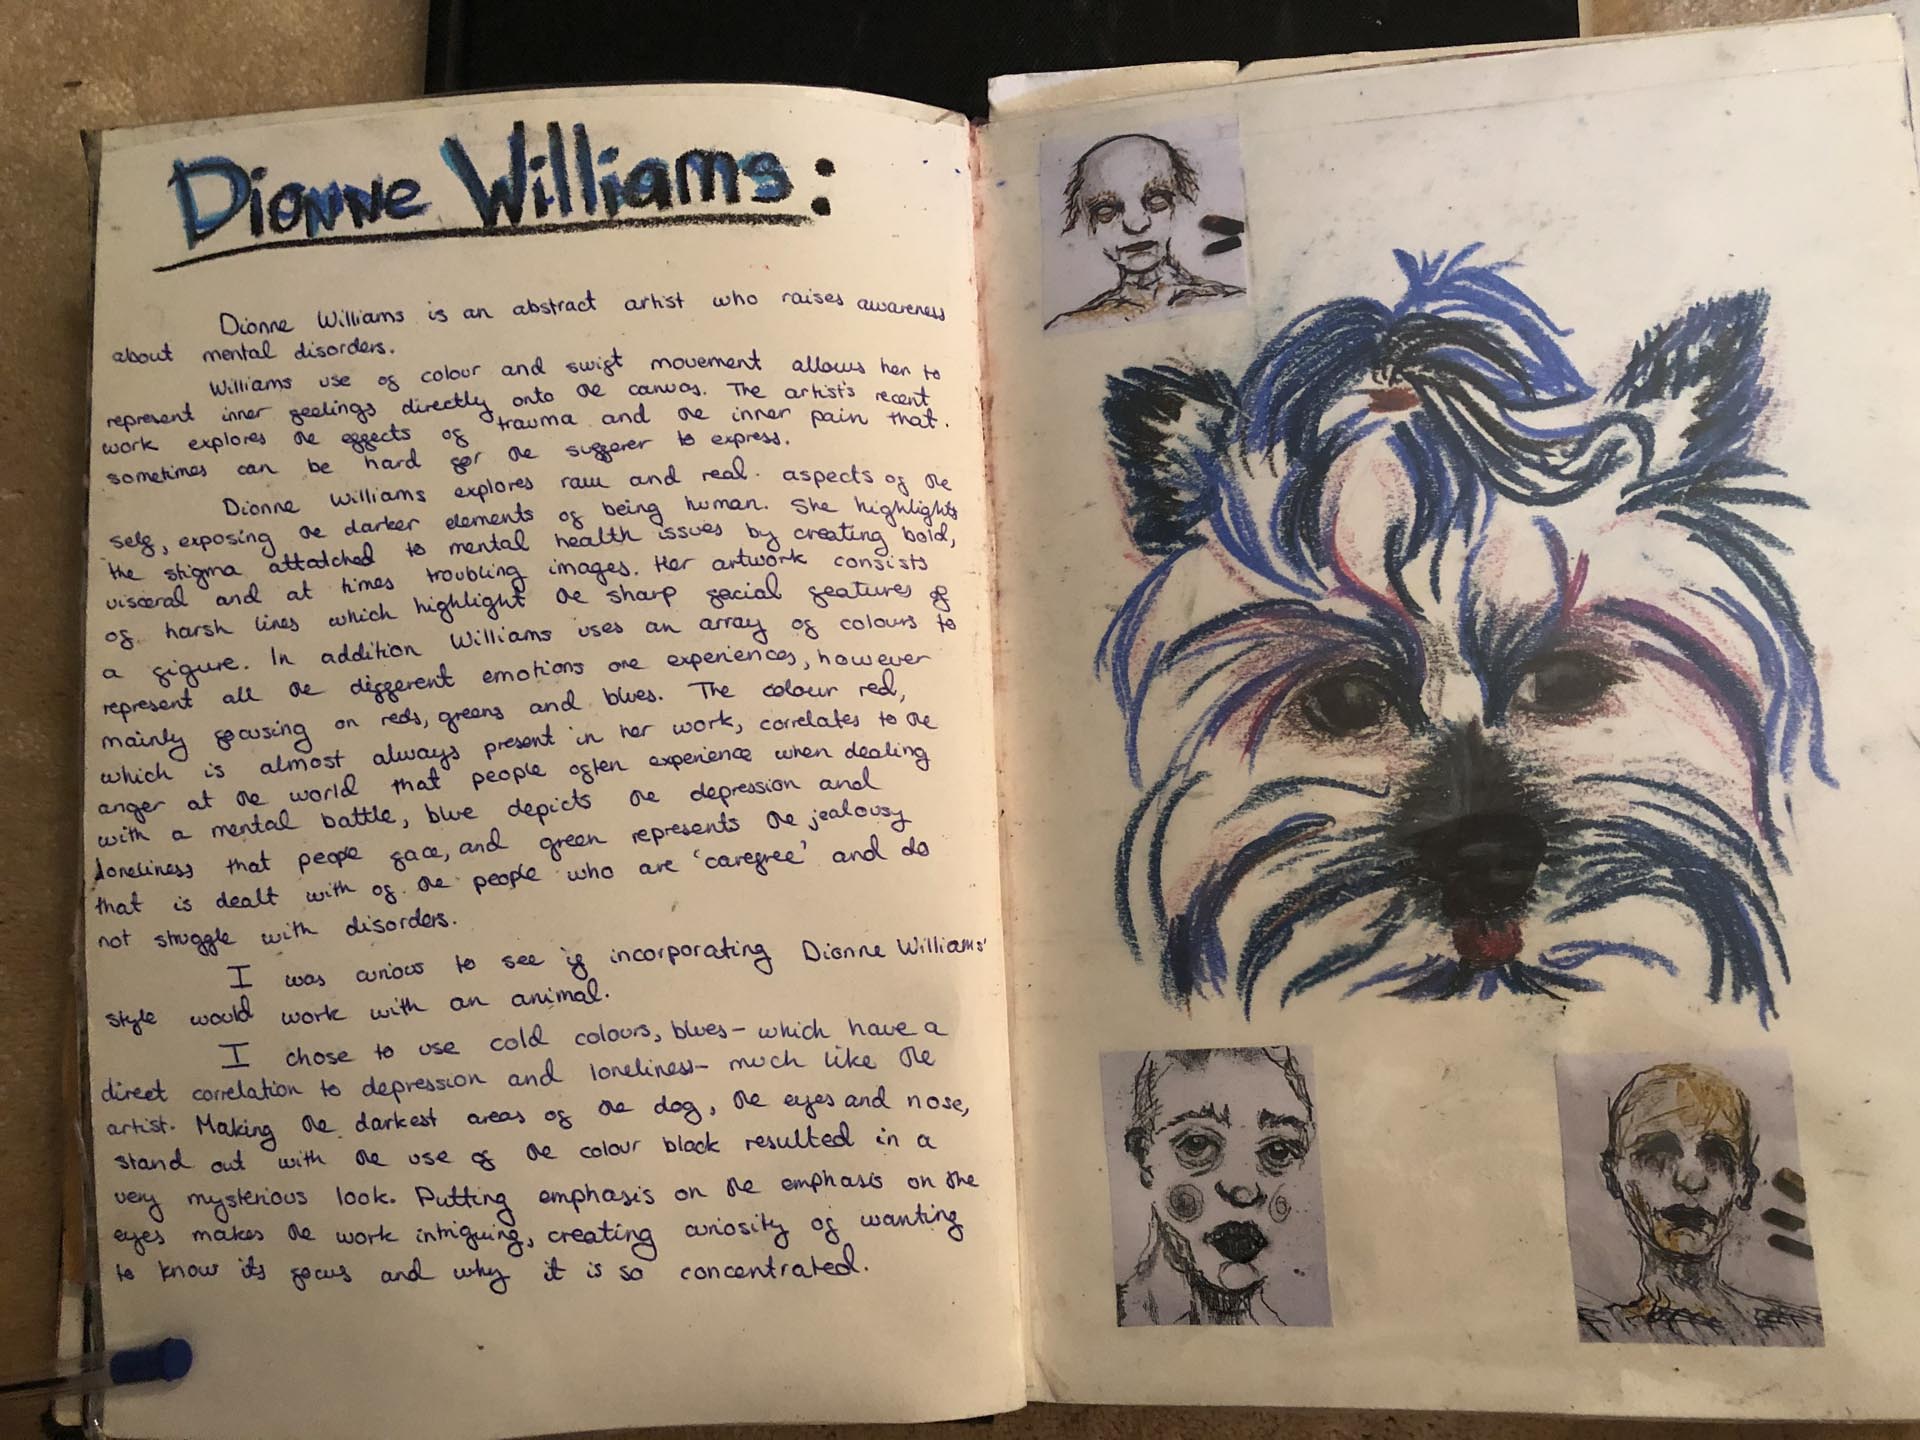 Dionne Williams:
Dionne Williams is an abstract artist who raises awareness
about mental disorders.
Williams use of colour and swift movement allows her to
represent inner feelings directly onto the canvas. The artist's recent
work explores the effects of trauma and the inner pain that.
sometimes can be hard for the sufferer to express.
Dionne Williams explores raw and real. aspects of the
self, exposing the darker elements of being human. She highlights
the stigma attatched to mental health issues by creating bold,
visceral and at times troubling images. Her artwork consists
of harsh lines which highlight the sharp facial features of
a figure. In addition Williams uses an array of colours to
represent all the different emotions one experiences, however
mainly focusing on reds, greens and blues. The colour red,
which is almost always present in her work, correlates to the
anger at the world that people often experience when dealing
with a mental battle, blue depicts the depression and
loneliness that people face, and green represents the jealousy
that is dealt with of the people who are 'carefree' and do
not struggle with disorders.
I was curious to see if incorporating Dionne Williams'
style would work with an animal.
I chose to use cold colours, blues- which have a
direct correlation to depression and loneliness- much like the
artist. Making the darkest areas of the dog, the eyes and nose,
stand out with the use of the colour black resulted in a
very mysterious look. Putting emphasis on the emphasis on the
eyes makes the work intriguing, creating curiosity of wanting
to know its focus and why it is so concentrated.